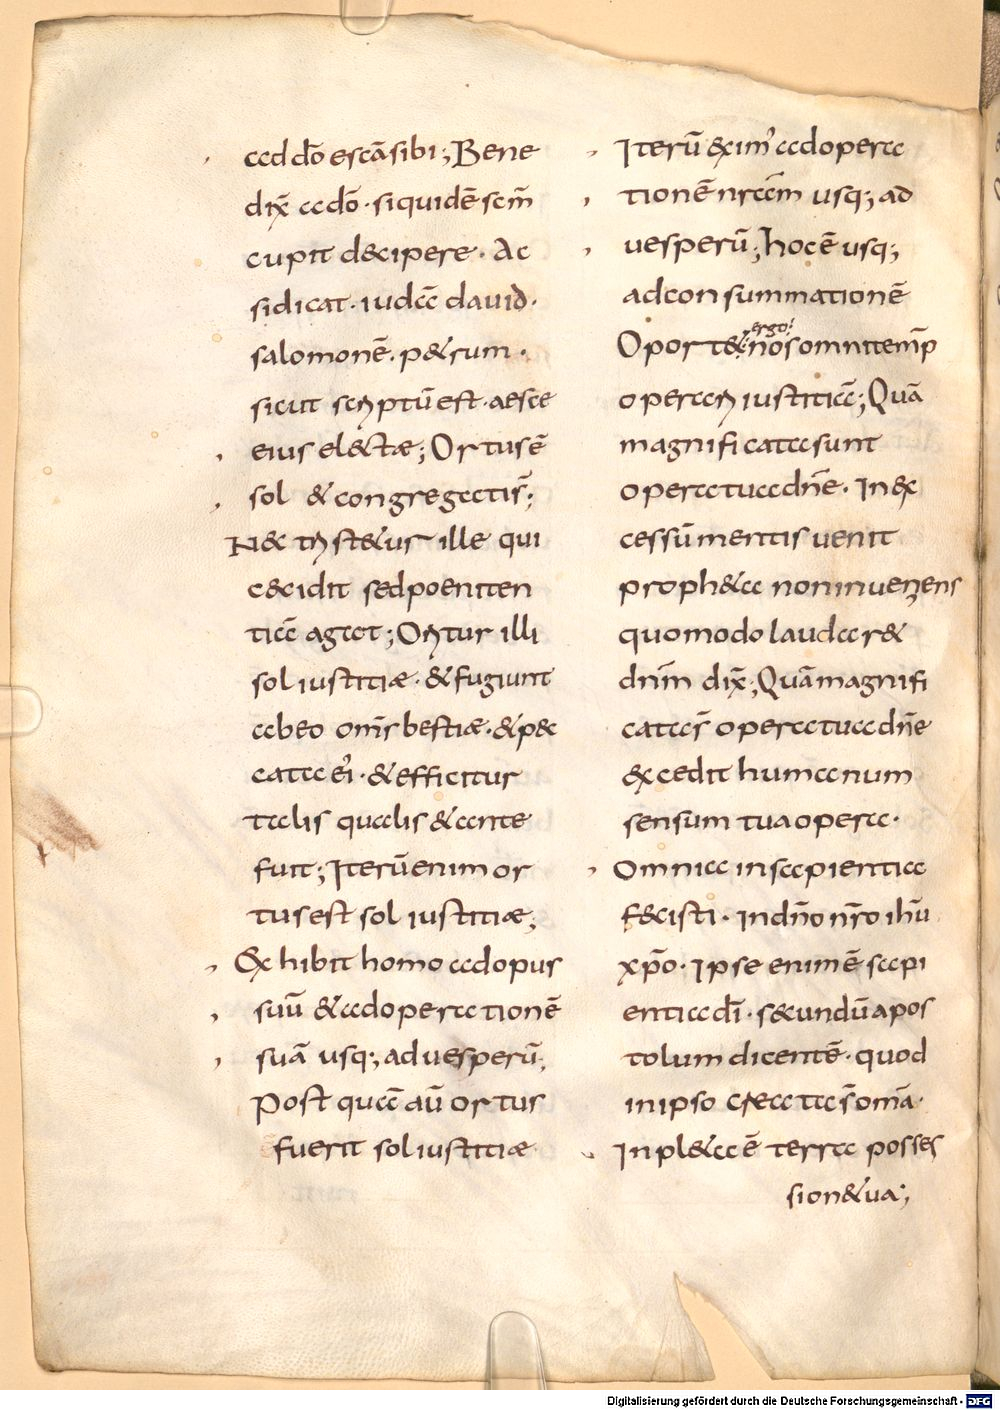 addo escā sibi; Bene
dix̄ a dō· siquidē scm̄
cupit decipere· Ac
si dicat· iudā david·
salomonē· petrum·
sicut scriptū est· aescae
eius electae; Ortus ē
sol & congregatis̄;
Nec tristetur ille qui
cecidit sed poeniten
tiā agat; Oritur illi
sol iustitiae· & fugiunt
ab eo om̄s bestiae· & pec
cata ei· & efficitur
talis qualis & ante
fuit; Iterū enim or
tus est sol iustitiae;
Exhibit homo ad opus
suū & ad operationē
suā usq; ad vesperū;
Post quā aū ortus
fuerit sol iustitiae
Iterū exim' ad opera
tionē nram̄ usq; ad
vesperū; hoc ē usq;
ad consummationē
Oportet ergo nos omni temp̄
operari iustitiā; Quā
magnificata sunt
opera tua dn̄e· In ex
cessū mentis venit
propheta non inveniens
quomodo laudaret
dnm̄ dix̄; Quā magnifi
cata s̄ opera tua dn̄e
excedit humanum
sensum tua opera·
Omnia in sapientia
fecisti· In dn̄o nr̄o ihū
xp̄o· Ipse enim ē sapi
entia dī· secundū apos
tolum dicentē· quod
in ipso creata s̄ omā·
Inpleta ē terra posses
sione tua;
Digitalisierung gefördert durch die Deutsche Forschungsgemeinschaft - DFG